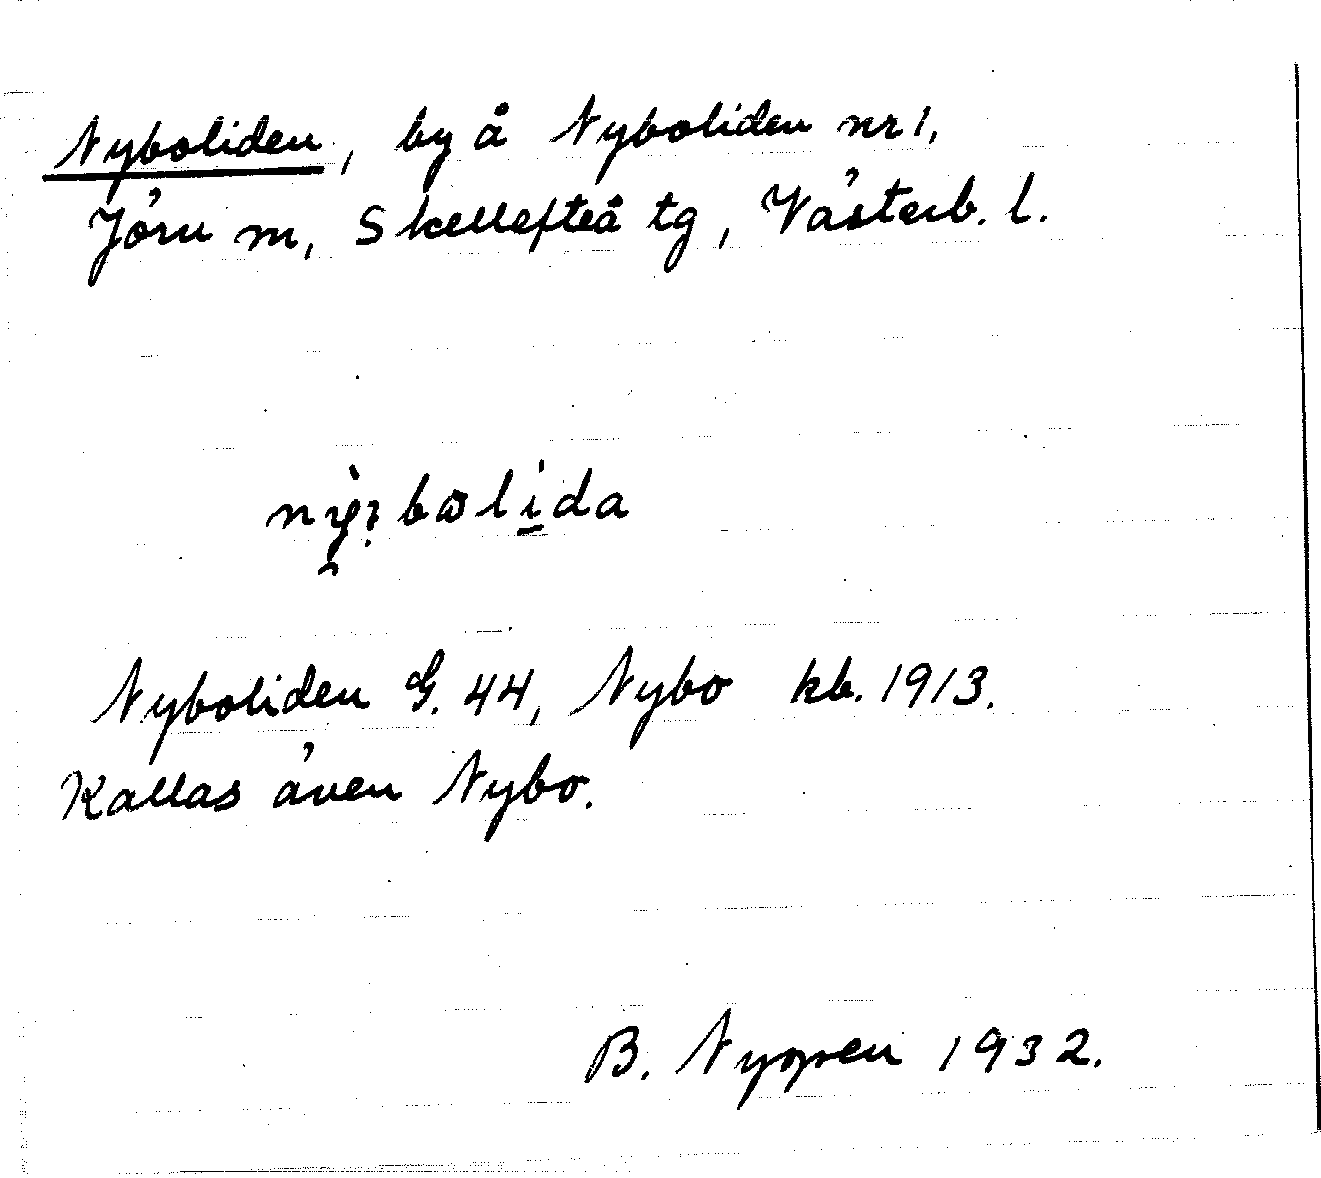 Nyboliden, by å Nyboliden nr 1,
Jörn m, Skellefteå tg, Västerb. l.
Nyboliden G. 44, Nybo kb. 1913.
Kallas även Nybo.
B. Nyopen 1932.